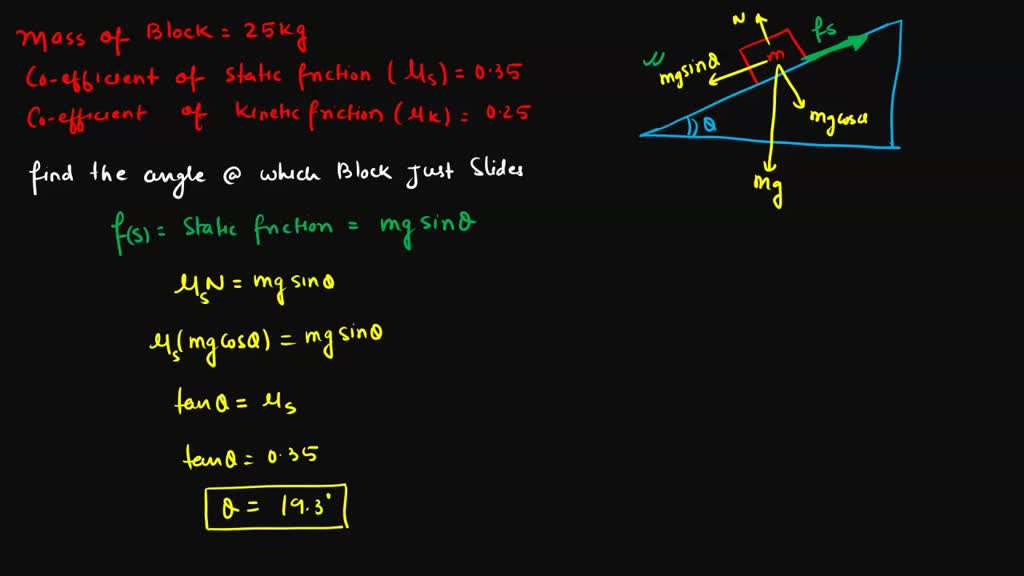 Mass of Block = 25kg
Co-efficient of static friction (μs) = 0.35
Co-efficient of kinetic friction (μK) = 0.25
find the angle @ which Block just slides
f(s) = static friction = mg sinθ
μsN = mg sinθ
μs(mg cosθ) = mg sinθ
tanθ = μs
tanθ = 0.35
θ = 19.3°
N
fs
m
mg sinθ
mg cosθ
θ
mg